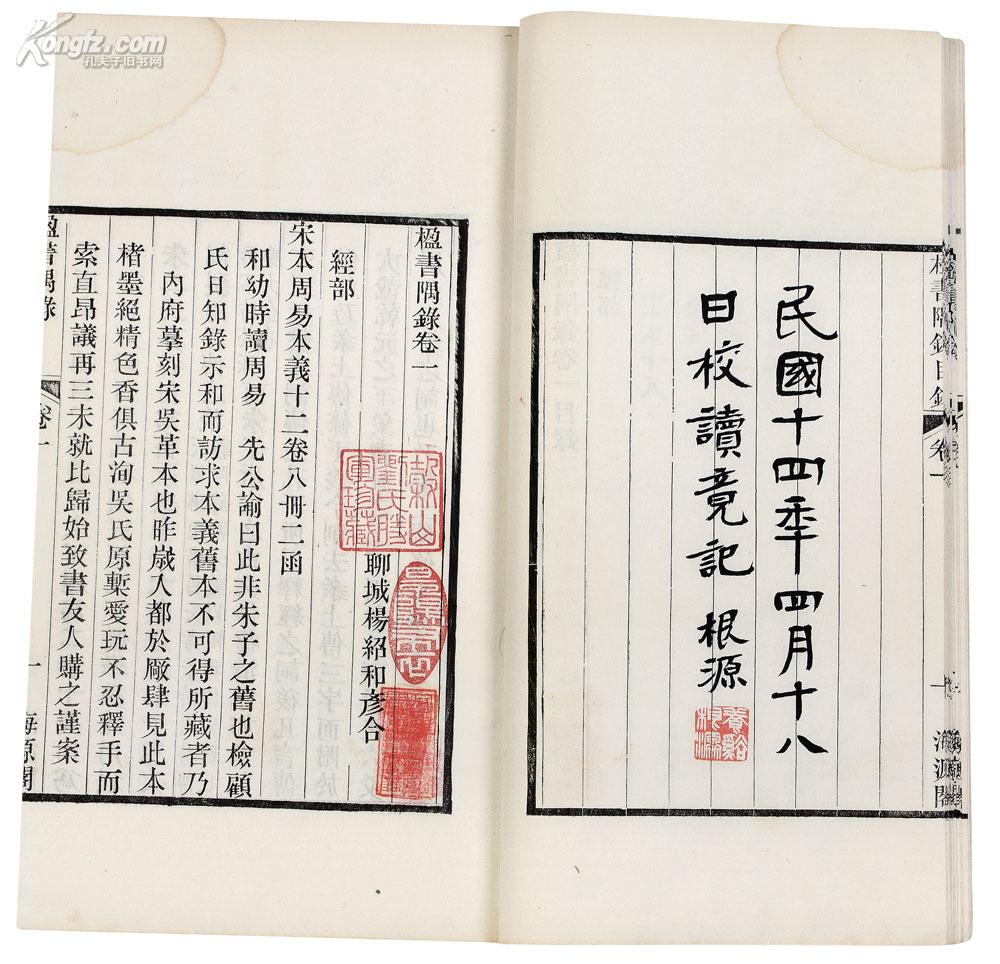 Kongfz.com
孔夫子旧书网
楹書隅錄目錄
卷一
一
海源閣
民國十四年四月十八
日校讀竟記 根源
楹書隅錄卷一
聊城楊紹和彥合
經部
宋本周易本義十二卷八冊二函
和幼時讀周易 先公諭曰此非朱子之舊也檢顧
氏日知錄示和而訪求本義舊本不可得所藏者乃
內府摹刻宋吳革本也昨歲入都於廠肆見此本
楮墨絕精色香俱古洵吳氏原槧愛玩不忍釋手而
索直昂議再三未就比歸始致書友人購之謹案
楹書隅錄
卷一
一
海源閣